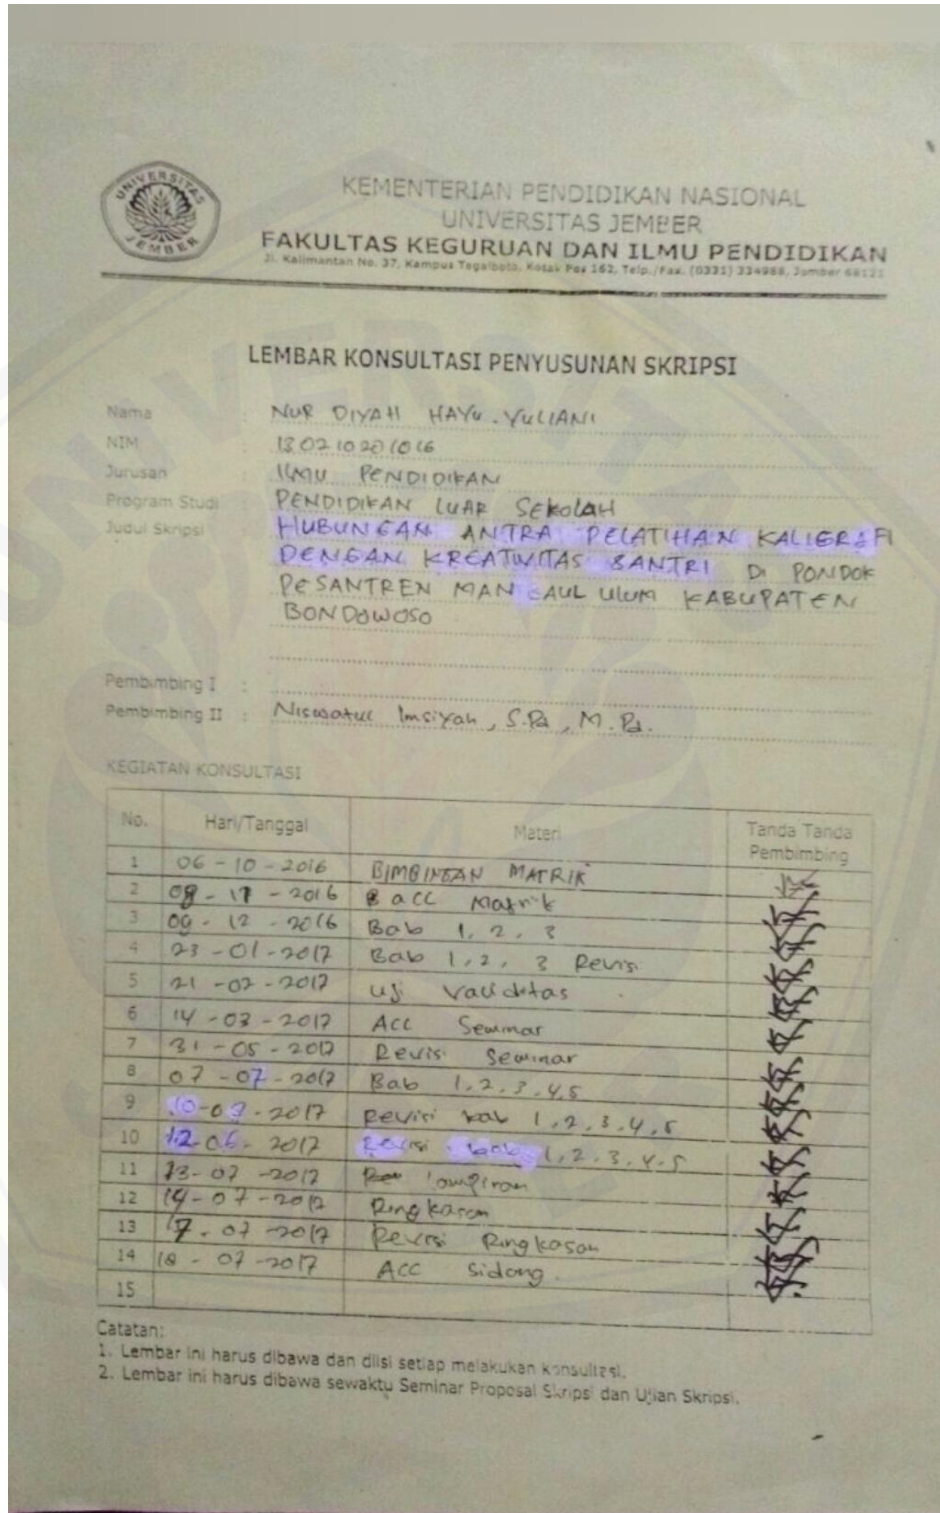 UNIVERSITAS JEMBER
KEMENTERIAN PENDIDIKAN NASIONAL
UNIVERSITAS JEMBER
FAKULTAS KEGURUAN DAN ILMU PENDIDIKAN
Jl. Kalimantan No. 37, Kampus Tegalboto, Kotak Pos 162, Telp./Fax. (0331) 334988, Jember 68121
LEMBAR KONSULTASI PENYUSUNAN SKRIPSI
Nama : NUR DIYAH HAYU YULIANI
NIM : 130210201016
Jurusan : ILMU PENDIDIKAN
Program Studi : PENDIDIKAN LUAR SEKOLAH
Judul Skripsi : HUBUNGAN ANTRA PELATIHAN KALIGRAFI
DENGAN KREATIVITAS SANTRI DI PONDOK
PESANTREN MANBAUL ULUM KABUPATEN
BONDOWOSO
Pembimbing I :
Pembimbing II : Niswatul Imsiyah, S.Pd, M.Pd.
KEGIATAN KONSULTASI
No. Hari/Tanggal Materi Tanda Tanda Pembimbing
1 06 - 10 - 2016 BIMBINGAN MATRIK
2 08 - 11 - 2016 acc Matrik
3 09 - 12 - 2016 Bab 1, 2, 3
4 23 - 01 - 2017 Bab 1, 2, 3 Revisi
5 21 - 02 - 2017 uji validitas
6 14 - 03 - 2017 Acc Seminar
7 31 - 05 - 2017 Revisi Seminar
8 07 - 07 - 2017 Bab 1, 2, 3, 4, 5
9 2017 Revisi bab 1, 2, 3, 4, 5
10 12 - 06 - 2017 Revisi bab 1, 2, 3, 4, 5
11 13 - 07 - 2017 lampiran
12 14 - 07 - 2017 Ringkasan
13 17 - 07 - 2017 Revisi Ringkasan
14 18 - 07 - 2017 Acc Sidang.
15
Catatan:
1. Lembar ini harus dibawa dan diisi setiap melakukan konsultasi.
2. Lembar ini harus dibawa sewaktu Seminar Proposal Skripsi dan Ujian Skripsi.